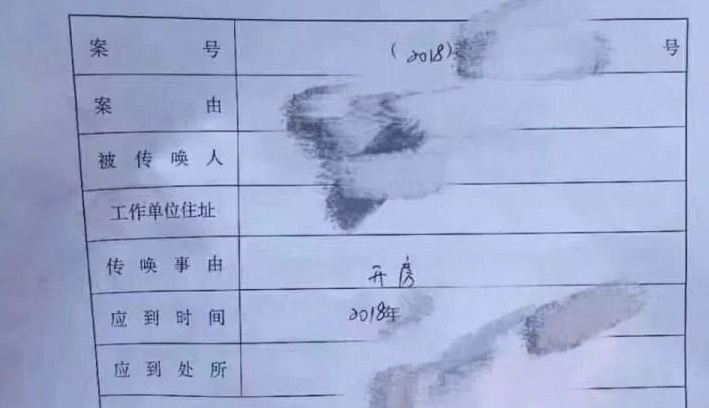 案号 (2018) 号
案由
被传唤人
工作单位住址
传唤事由 开房
应到时间 2018年
应到处所